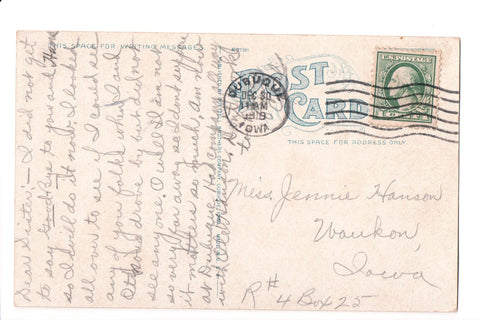 THIS SPACE FOR WRITING MESSAGES.
POST
CARD
THIS SPACE FOR ADDRESS ONLY.
DUBUQUE
IOWA
U.S. POSTAGE
Dear Sister:- I did not get
to say Goodbye to you and
so I will do it now. I looked
all over to see if I could see
any of your folks when I and
drove by but did not
see any one. O well I am not
so very far away so I dont
it matters so much. Am
at Dubuque
with
Miss. Jennie Hanson
Waukon,
Iowa
R# 4 Box 25